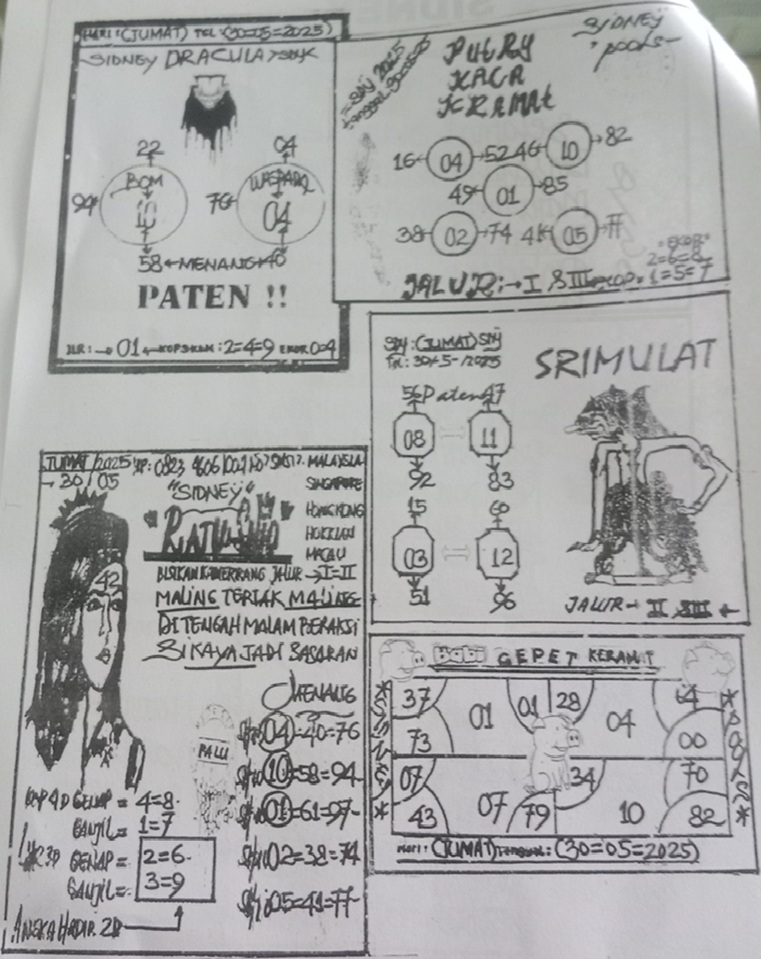 HARI : (JUMAT) TGL : (30=05=2025)
SIDNEY DRACULA SDYK
22 04
BOM WASPADA
94 10 76 04
58 MENANG 40
PATEN !!
JLR : → 01 ← KOP : 2=4=9 EKOR 0=4
SIDNEY
pools
SDY 2025
PUTRY
KACA
KRAMAT
16 04 52 46 10 82
49 01 85
38 02 74 41 05 77
EKOR
2=6=8
JALUR : → I & III KOP = 1=5=7
SDY : (JUMAT) SDY
TGL : 30/5-/2025
SRIMULAT
56 Paten 47
08 11
92 83
15 60
03 12
51 96
JALUR → II & III ←
JUMAT/2025 MALAYSIA
→ 30/05 SINGAPORE
"SIDNEY" HONGKONG
RATU HOKKIAN
MACAU
JALUR → I=II
MALING TERIAK MALING
DITENGAH MALAM BERAKSI
SIKAYA JADI SASARAN
42
MENANG
PALU
04=40=76
10=58=94
01=61=97
02=38=74
05=41=77
KOP 4D GENAP = 4=8
GANJIL = 1=7
GENAP = 2=6
GANJIL = 3=9
ANGKA HADIR 2D
BABI GEPET KERAMAT
SIDNEY
POOLS
37 01 01 28 04 64
73 00
07 34 70
43 07 79 10 82
HARI : (JUMAT) TANGGAL : (30=05=2025)